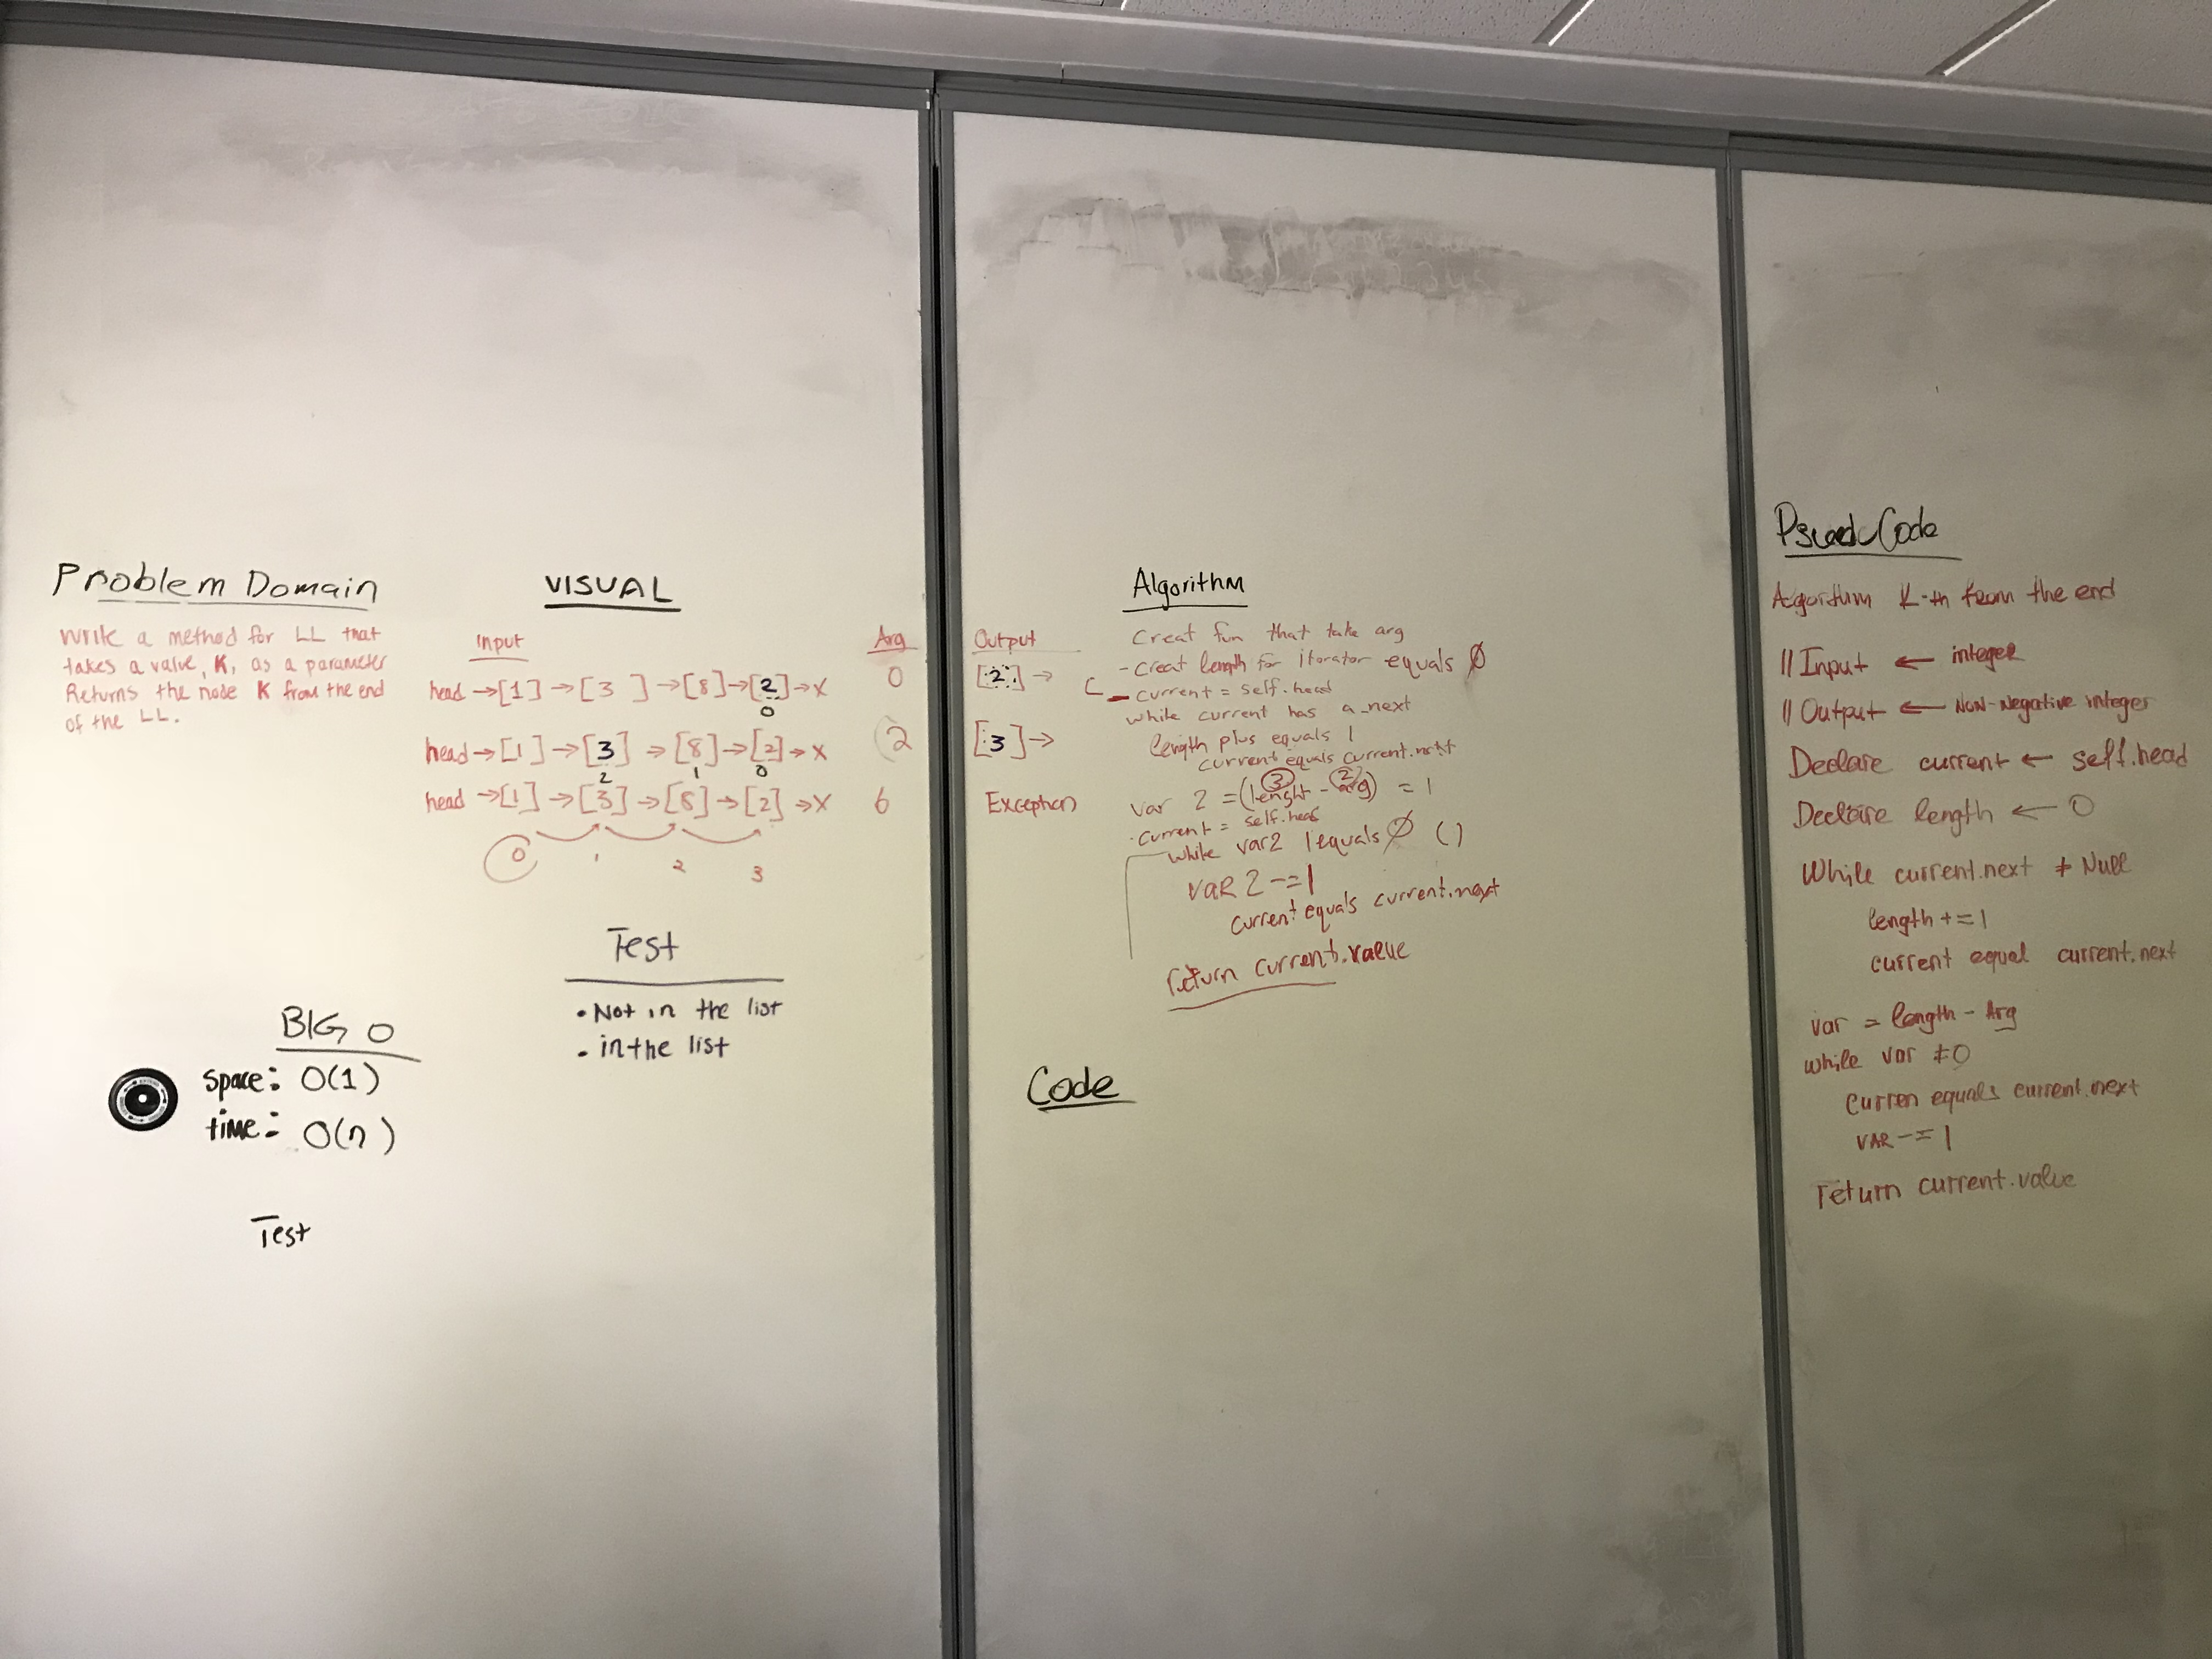 Problem Domain
Write a method for LL that
takes a value, K, as a parameter
Returns the node K from the end
of the LL.
VISUAL
Input
Arg
Output
head →[1] →[3 ] →[8]→[2]→X
0
[2] →
0
head→[1] →[3] →[8]→[2]→X
2
[3]→
2 1 0
head →[1] →[3] →[8] →[2] →X
6
Exception
0 1 2 3
Test
• Not in the list
• in the list
BIG O
space: O(1)
time: O(n)
Test
Algorithm
Creat fun that take arg
- creat length for iterator equals 0
current = self.head
while current has a _next
length plus equals 1
current equals current.next
3 2
var 2 = (lenght - arg) = 1
current = self.head
while var2 !equals 0 ()
VAR 2 -=1
current equals current.next
return current.value
Code
Psuedo Code
Algorithm K-th from the end
// Input ← integer
// Output ← NON-Negative integer
Declare current ← self.head
Declare length ← 0
While current.next ≠ Null
length +=1
current equal current.next
var = length - Arg
while var ≠0
Curren equals current.next
VAR -= 1
return current.value